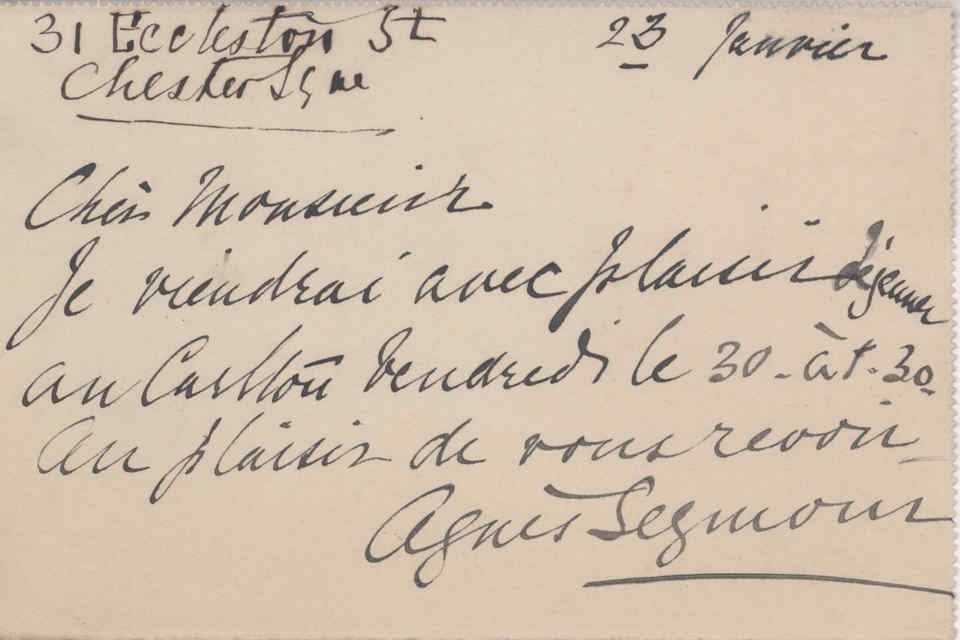 31 Eccleston St 23 Janvier
Chester Sqre
Cher Monsieur
Je viendrai avec plaisir déjeuner
au Carlton Vendredi le 30 - à 1.30
Au plaisir de vous revoir
Agnès Seymour